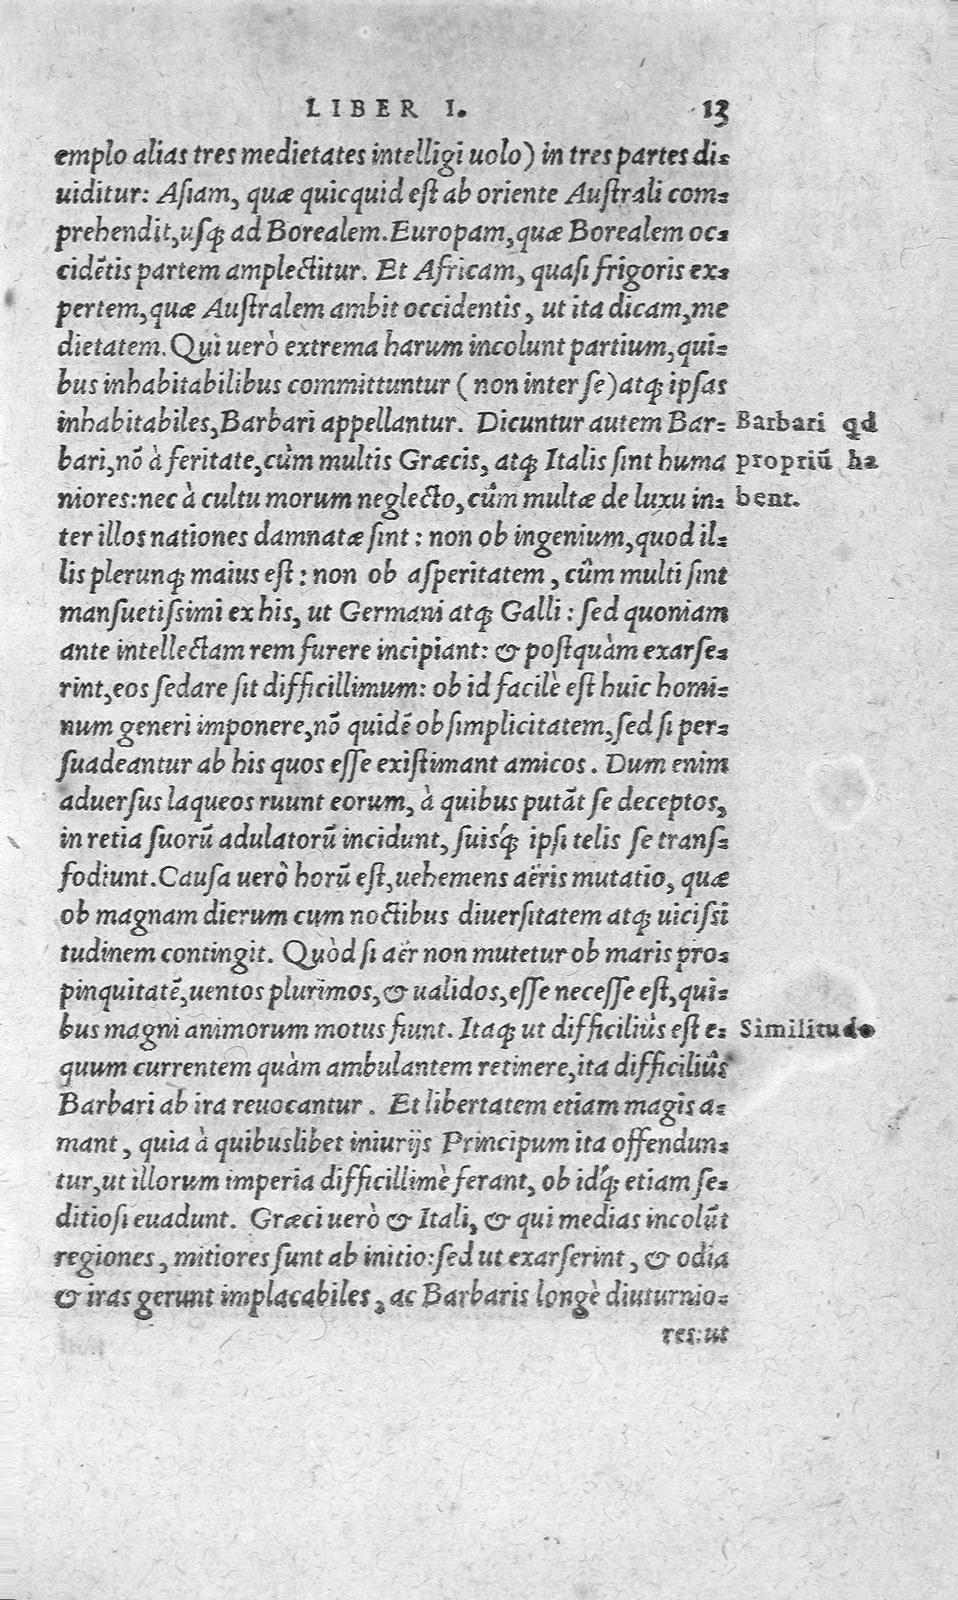 LIBER I. 13
emplo alias tres medietates intelligi uolo) in tres partes di-
uiditur: Asiam, quæ quicquid est ab oriente Australi com-
prehendit, usq̃ ad Borealem. Europam, quæ Borealem oc-
cidẽtis partem amplectitur. Et Africam, quasi frigoris ex-
pertem, quæ Australem ambit occidentis, ut ita dicam, me
dietatem. Qui uerò extrema harum incolunt partium, qui-
bus inhabitabilibus committuntur (non inter se) atq̃ ipsas
inhabitabiles, Barbari appellantur. Dicuntur autem Bar-
bari, nõ à feritate, cùm multis Græcis, atq̃ Italis sint huma
niores: nec à cultu morum neglecto, cûm multæ de luxu in-
ter illos nationes damnatæ sint: non ob ingenium, quod il-
lis plerunq̃ maius est: non ob asperitatem, cûm multi sint
mansuetissimi ex his, ut Germani atq̃ Galli: sed quoniam
ante intellectam rem furere incipiant: & postquàm exarse-
rint, eos sedare sit difficillimum: ob id facilè est huic homi-
num generi imponere, nõ quidẽ ob simplicitatem, sed si per-
suadeantur ab his quos esse existimant amicos. Dum enim
aduersus laqueos ruunt eorum, à quibus putãt se deceptos,
in retia suorũ adulatorũ incidunt, suisq́ ipsi telis se trans-
fodiunt. Causa uerò horũ est, uehemens aëris mutatio, quæ
ob magnam dierum cum noctibus diuersitatem atq̃ uicissi
tudinem contingit. Quòd si aër non mutetur ob maris pro-
pinquitatẽ, uentos plurimos, & ualidos, esse necesse est, qui-
bus magni animorum motus fiunt. Itaq̃ ut difficiliùs est e-
quum currentem quàm ambulantem retinere, ita difficiliûs
Barbari ab ira reuocantur. Et libertatem etiam magis a-
mant, quia à quibuslibet iniurijs Principum ita offendun-
tur, ut illorum imperia difficillimè ferant, ob idq́ etiam se-
ditiosi euadunt. Græci uerò & Itali, & qui medias incolũt
regiones, mitiores sunt ab initio: sed ut exarserint, & odia
& iras gerunt implacabiles, ac Barbaris longè diuturnio-
res: ut
Barbari qd
propriũ ha
bent.
Similitudo